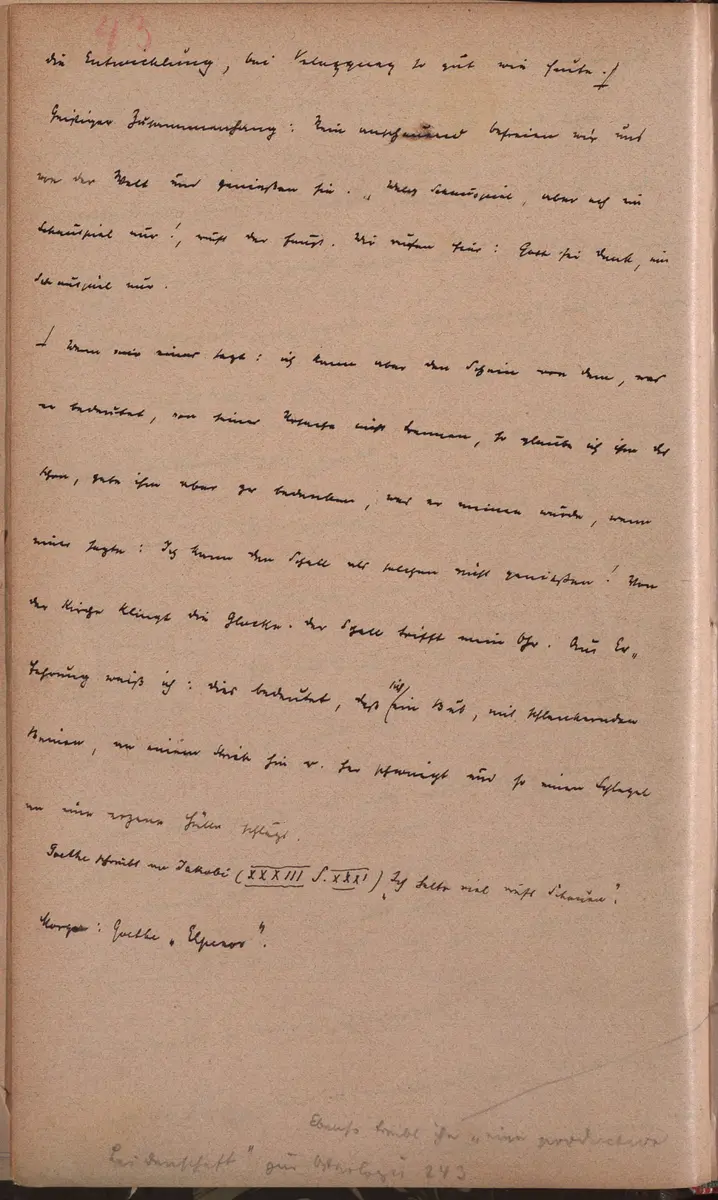 43
die Entwicklung, bei Velazquez so gut wie heute.
Geistiger Zusammenhang: Rein anschauend befreien wir uns
von der Welt und genießen sie. „Welch Schauspiel, aber ach ein
Schauspiel nur!, ruft der Faust. Wir rufen hier: Gott sei Dank, ein
Schauspiel nur.
Wenn mir einer sagt: ich kann aber den Schein von dem, was
er bedeutet, von seiner Ursache nicht trennen, so glaube ich ihm das
schon, gebe ihm aber zu bedenken, was er meinen würde, wenn
einer sagte: Ich kann den Schall als solchen nicht genießen! Von
der Kirche klingt die Glocke. Der Schall trifft mein Ohr. Aus Er„
fahrung weiß ich: dies bedeutet, daß sich ein Bub, mit schlenkernden
Beinen, an einem Strick hin u. her schwingt und so einen Schlegel
an eine erzene Hülle schlägt.
Goethe schreibt an Jakobi (XXXIII S. XXXI) „Ich halte viel aufs Schauen".
: Goethe „Elpenor".
Ebenso treibt ihn „eine productive
Leidenschaft" zur Osteologie 243